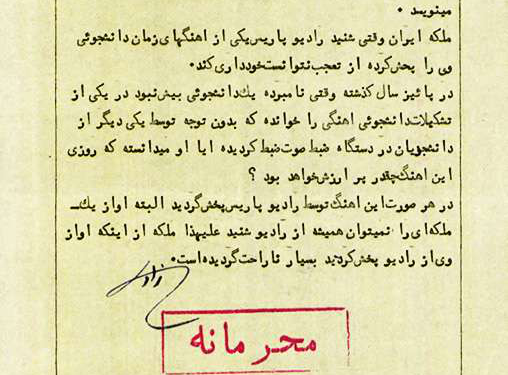 مینویسد ۰
ملکه ایران وقتی شنید رادیو پاریس یکی از اهنگهای زمان دانشجوئی
وی را پخش کرده از تعجب نتوانست خودداری کند۰
در پائیز سال گذشته وقتی نامبرده یک دانشجوئی بیش نبود در یکی از
تشکیلات دانشجوئی اهنگی را خوانده که بدون توجه توسط یکی دیگر از
دانشجویان در دستگاه ضبط صوت ضبط گردیده ایا او میدانسته که روزی
این اهنگ چقدر پر ارزش خواهد بود ؟
در هر صورت این اهنگ توسط رادیو پاریس پخش گردید البته اواز یک
ملکه‌ای را نمیتوان همیشه از رادیو شنید علیهذا ملکه از اینکه اواز
وی از رادیو پخش گردید بسیار ناراحت گردیده است۰
محرمانه